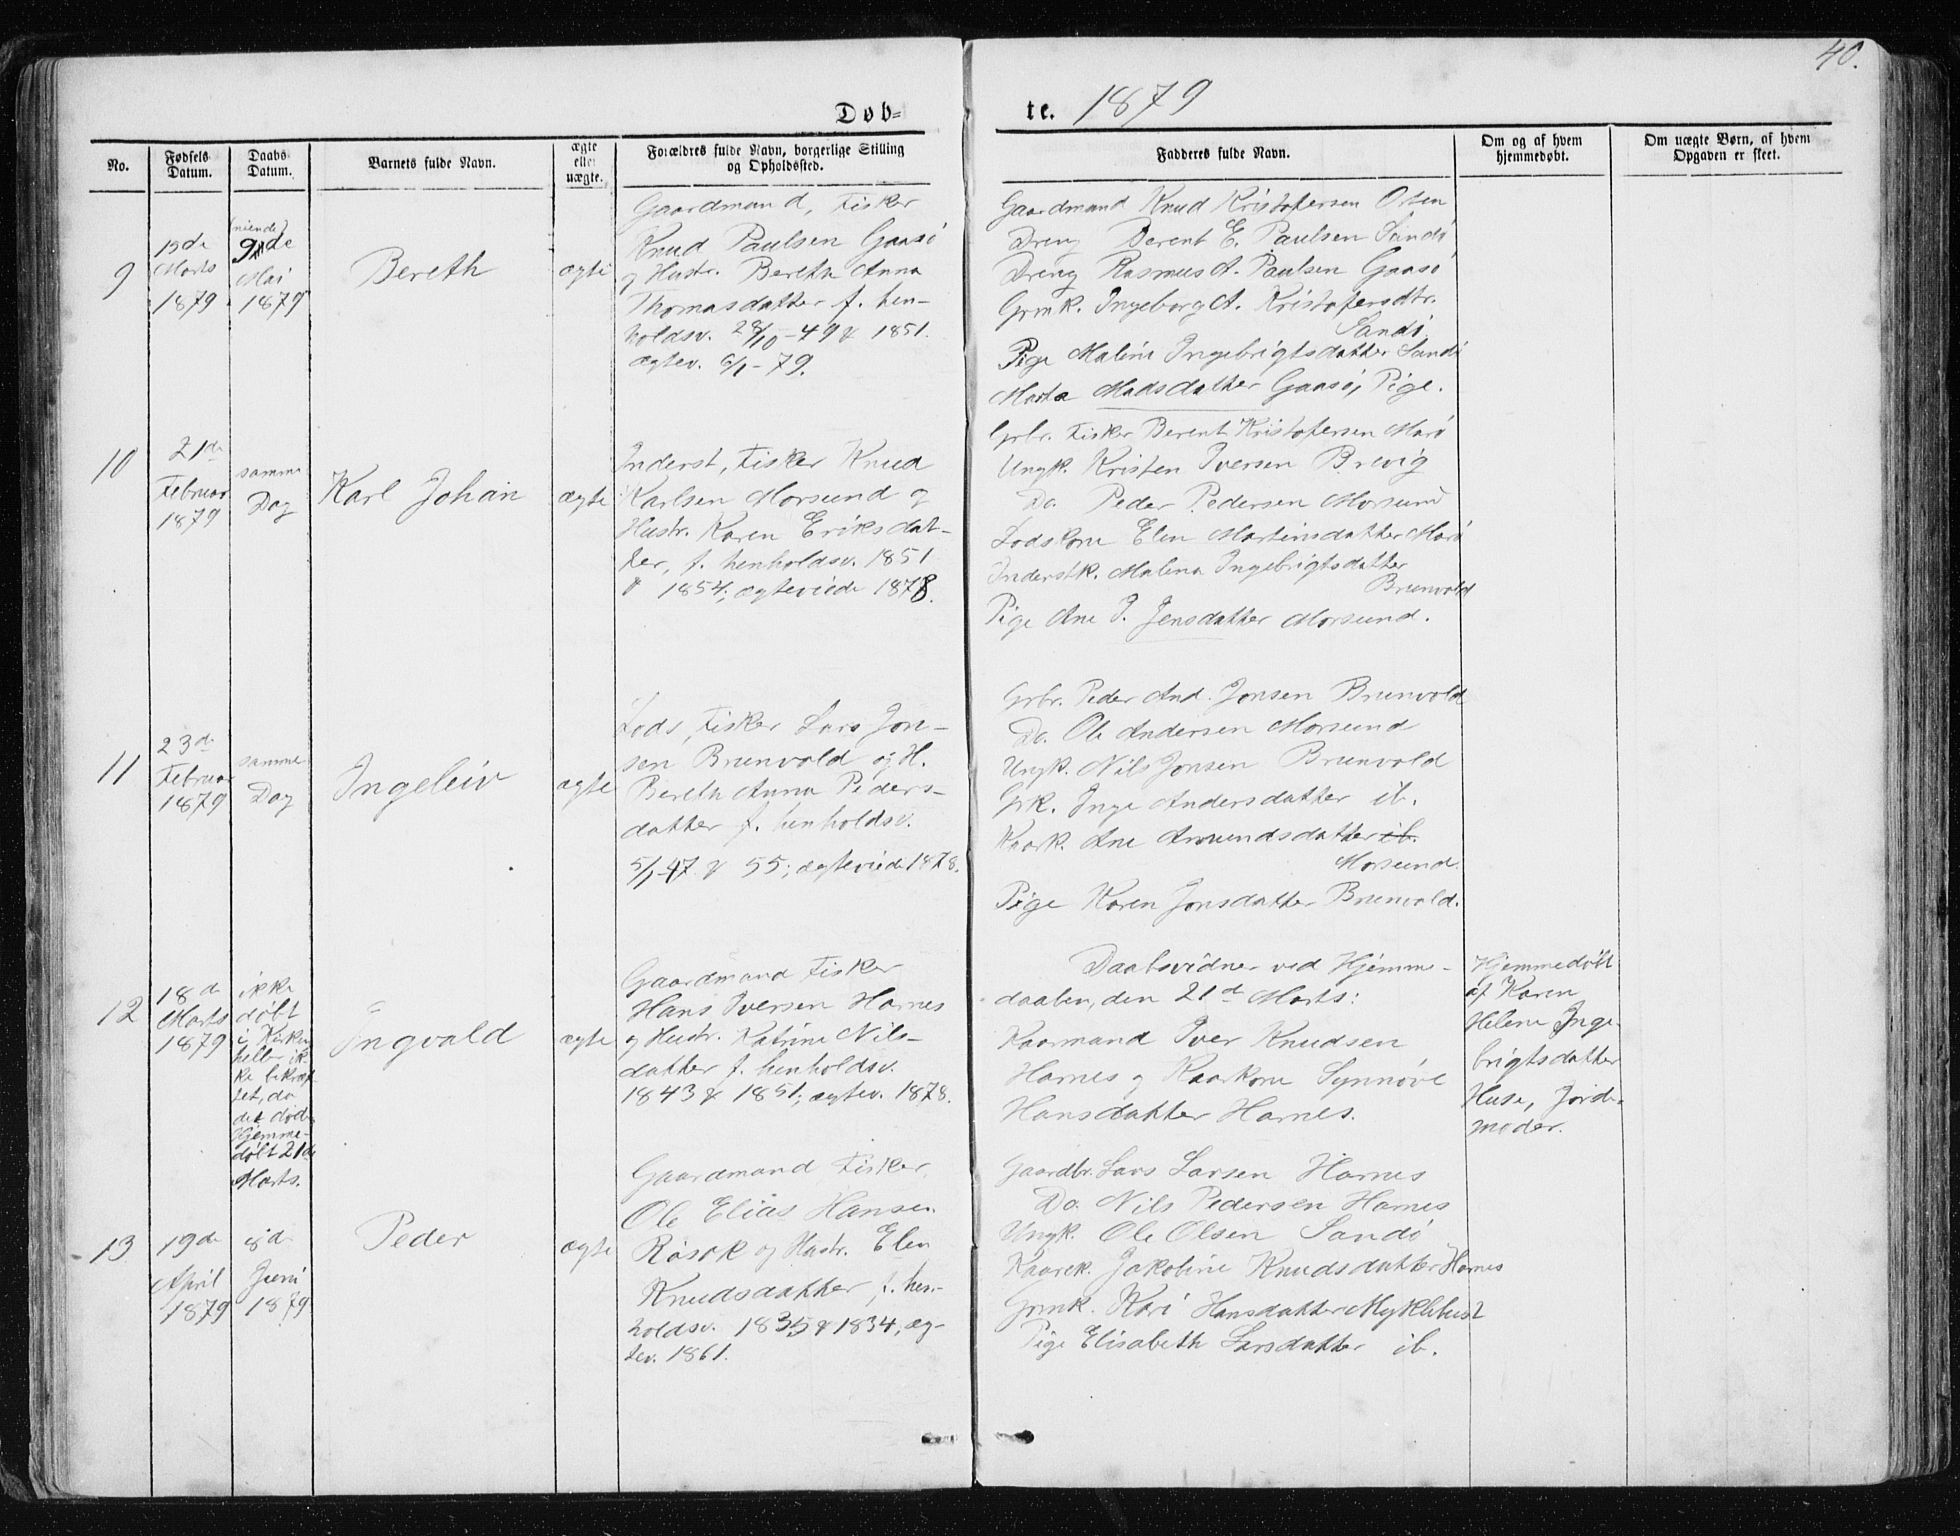 40.
Døb-
te. 1879
No.
Fødsels
Datum.
Daabs
Datum.
Barnets fulde Navn.
ægte
eller
uægte.
Forældres fulde Navn, borgerlige Stilling
og Opholdssted.
Faddernes fulde Navn.
Om og af hvem
hjemmedøbt.
Om uægte Børn, af hvem
Opgaven er skeet.
9
19de
Marts
1879
(niende)
9de
Mai
1879
Bereth
ægte
Gaardmand, Fisker
Knud Paulsen Gaasø
og Hustr. Bereth Anna
Thomasdatter f. hen-
holdsv. 28/10-49 & 1851.
ægtev. 6/1-79.
Gaardmand Knud Kristofersen Otsen
Dreng Berent E. Paulsen Sandø
Dreng Rasmus A. Paulsen Gaasø
Grmk. Ingeborg A. Kristofersdtr.
Sandø.
Pige Malene Ingebrigtsdatter Sandø
Marta Madsdatter Gaasø, Pige.
10
21de
Februar
1879
samme
Dag
Karl Johan
ægte
Inderst, Fisker Knud
Karlsen Morsund og
Hustr. Karen Eriksdat-
ter, f. henholdsv. 1851
" 1854; ægteviede 1878.
Grbr. Fisker Berent Kristofersen Marø
Ungk. Kristen Iversen Brevig
Do. Peder Pedersen Morsund
Lodskone Elen Martinsdatter Marø
Inderstk. Malena Ingebrigtsdatter
Brunvold
Pige Ane J. Jensdatter Morsund.
11
23de
Februar
1879
samme
Dag
Ingeleiv
ægte
Lods, Fisker Lars Jon-
sen Brunvold og H.
Bereth Anna Peders-
datter f. henholdsv.
5/1-47 & 55; ægteviede 1878.
Grbr. Peder And. Jonsen Brunvold
Do. Ole Andersen Morsund
Ungk. Nils Jonsen Brunvold
Grk. Inge Andersdatter ib.
Kaark. Ane Amundsdatter ib.
Morsund.
Pige Karen Jonsdatter Brunvold.
12
18de
Marts
1879
ikke
døbt
i Kirken
heller ik-
ke bekræf-
tet, da
det døde
Hjemme-
døbt 21de
Marts.
Ingvald
ægte
Gaardmand Fisker
Hans Iversen Harnes
og Hustr. Katrine Nils-
datter f. henholdsv.
1843 & 1851; ægtev. 1878.
Daabsvidner ved Hjemme-
daaben, den 21de Marts:
Kaarmand Iver Knudsen
Harnes og Kaarkone Synnøve
Hansdatter Harnes.
Hjemmedøbt
af Karen
Helene Inge-
brigtsdatter
Huse, Jorde-
moder.
13
19de
April
1879
8de
Juni
1879
Peder
ægte
Gaardmand Fisker
Ole Elias Hansen
Røsok og Hustr. Elen
Knudsdatter, f. hen-
holdsv. 1835 & 1834; æg-
tev. 1861.
Gaardbr. Lars Larsen Harnes
Do. Nils Pedersen Harnes
Ungk. Ole Olsen Sandø
Kaarek. Jakobine Knudsdatter Harnes
Grmk. Kari Hansdatter Myklebust
Pige Elisabeth Larsdatter ib.